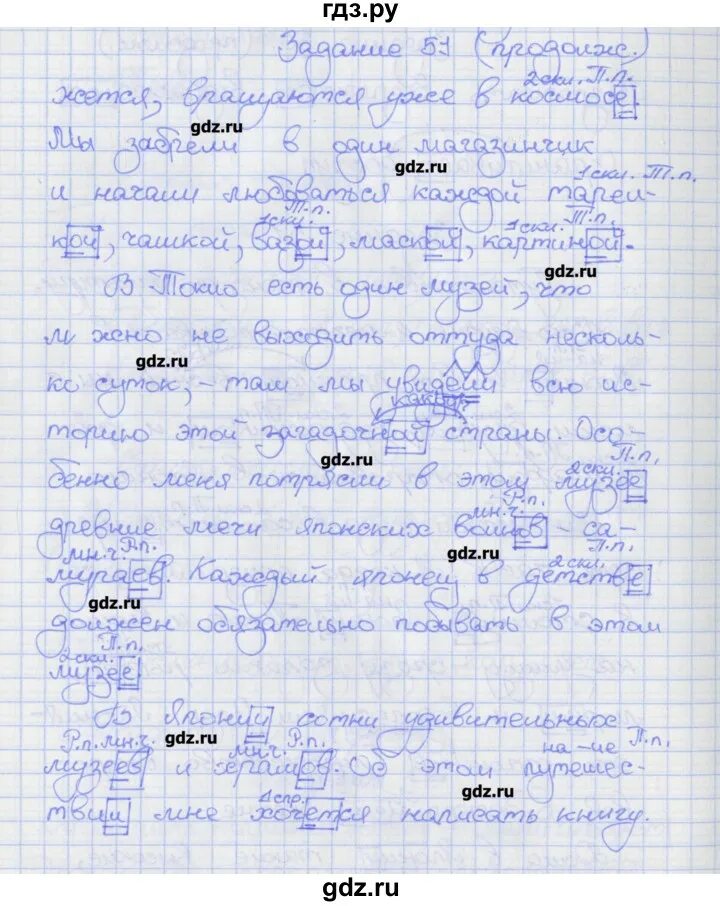 гдз.ру
Задание 51 (продолж.
2скл. П.п.
жется, вращаются уже в космосе
gdz.ru
Мы забрели в один магазинчик
gdz.ru
1скл. Т.п.
и начали любоваться каждой тарел-
1скл. Т.п. 1скл. Т.п.
кой, чашкой, вазой, маской, картиной.
gdz.ru
В Токио есть один музей, что
можно не выходить оттуда несколь-
gdz.ru
ко суток, – там мы увидели всю ис-
какой
торию этой загадочной страны. Осо-
gdz.ru
2скл. П.п.
бенно меня потрясли в этом музее
мн.ч. Р.п.
древние мечи японских воинов – са-
gdz.ru
мн.ч. Р.п. 2скл. П.п.
мураев. Каждый японец в детстве
gdz.ru
должен обязательно побывать в этом
2скл. П.п.
музее
В Японии сотни удивительных
gdz.ru
Р.п. мн.ч. мн.ч. Р.п. на -ие П.п.
музеев и храмов. Об этом путешес-
gdz.ru
1спр.
твии мне хочется написать книгу.
gdz.ru